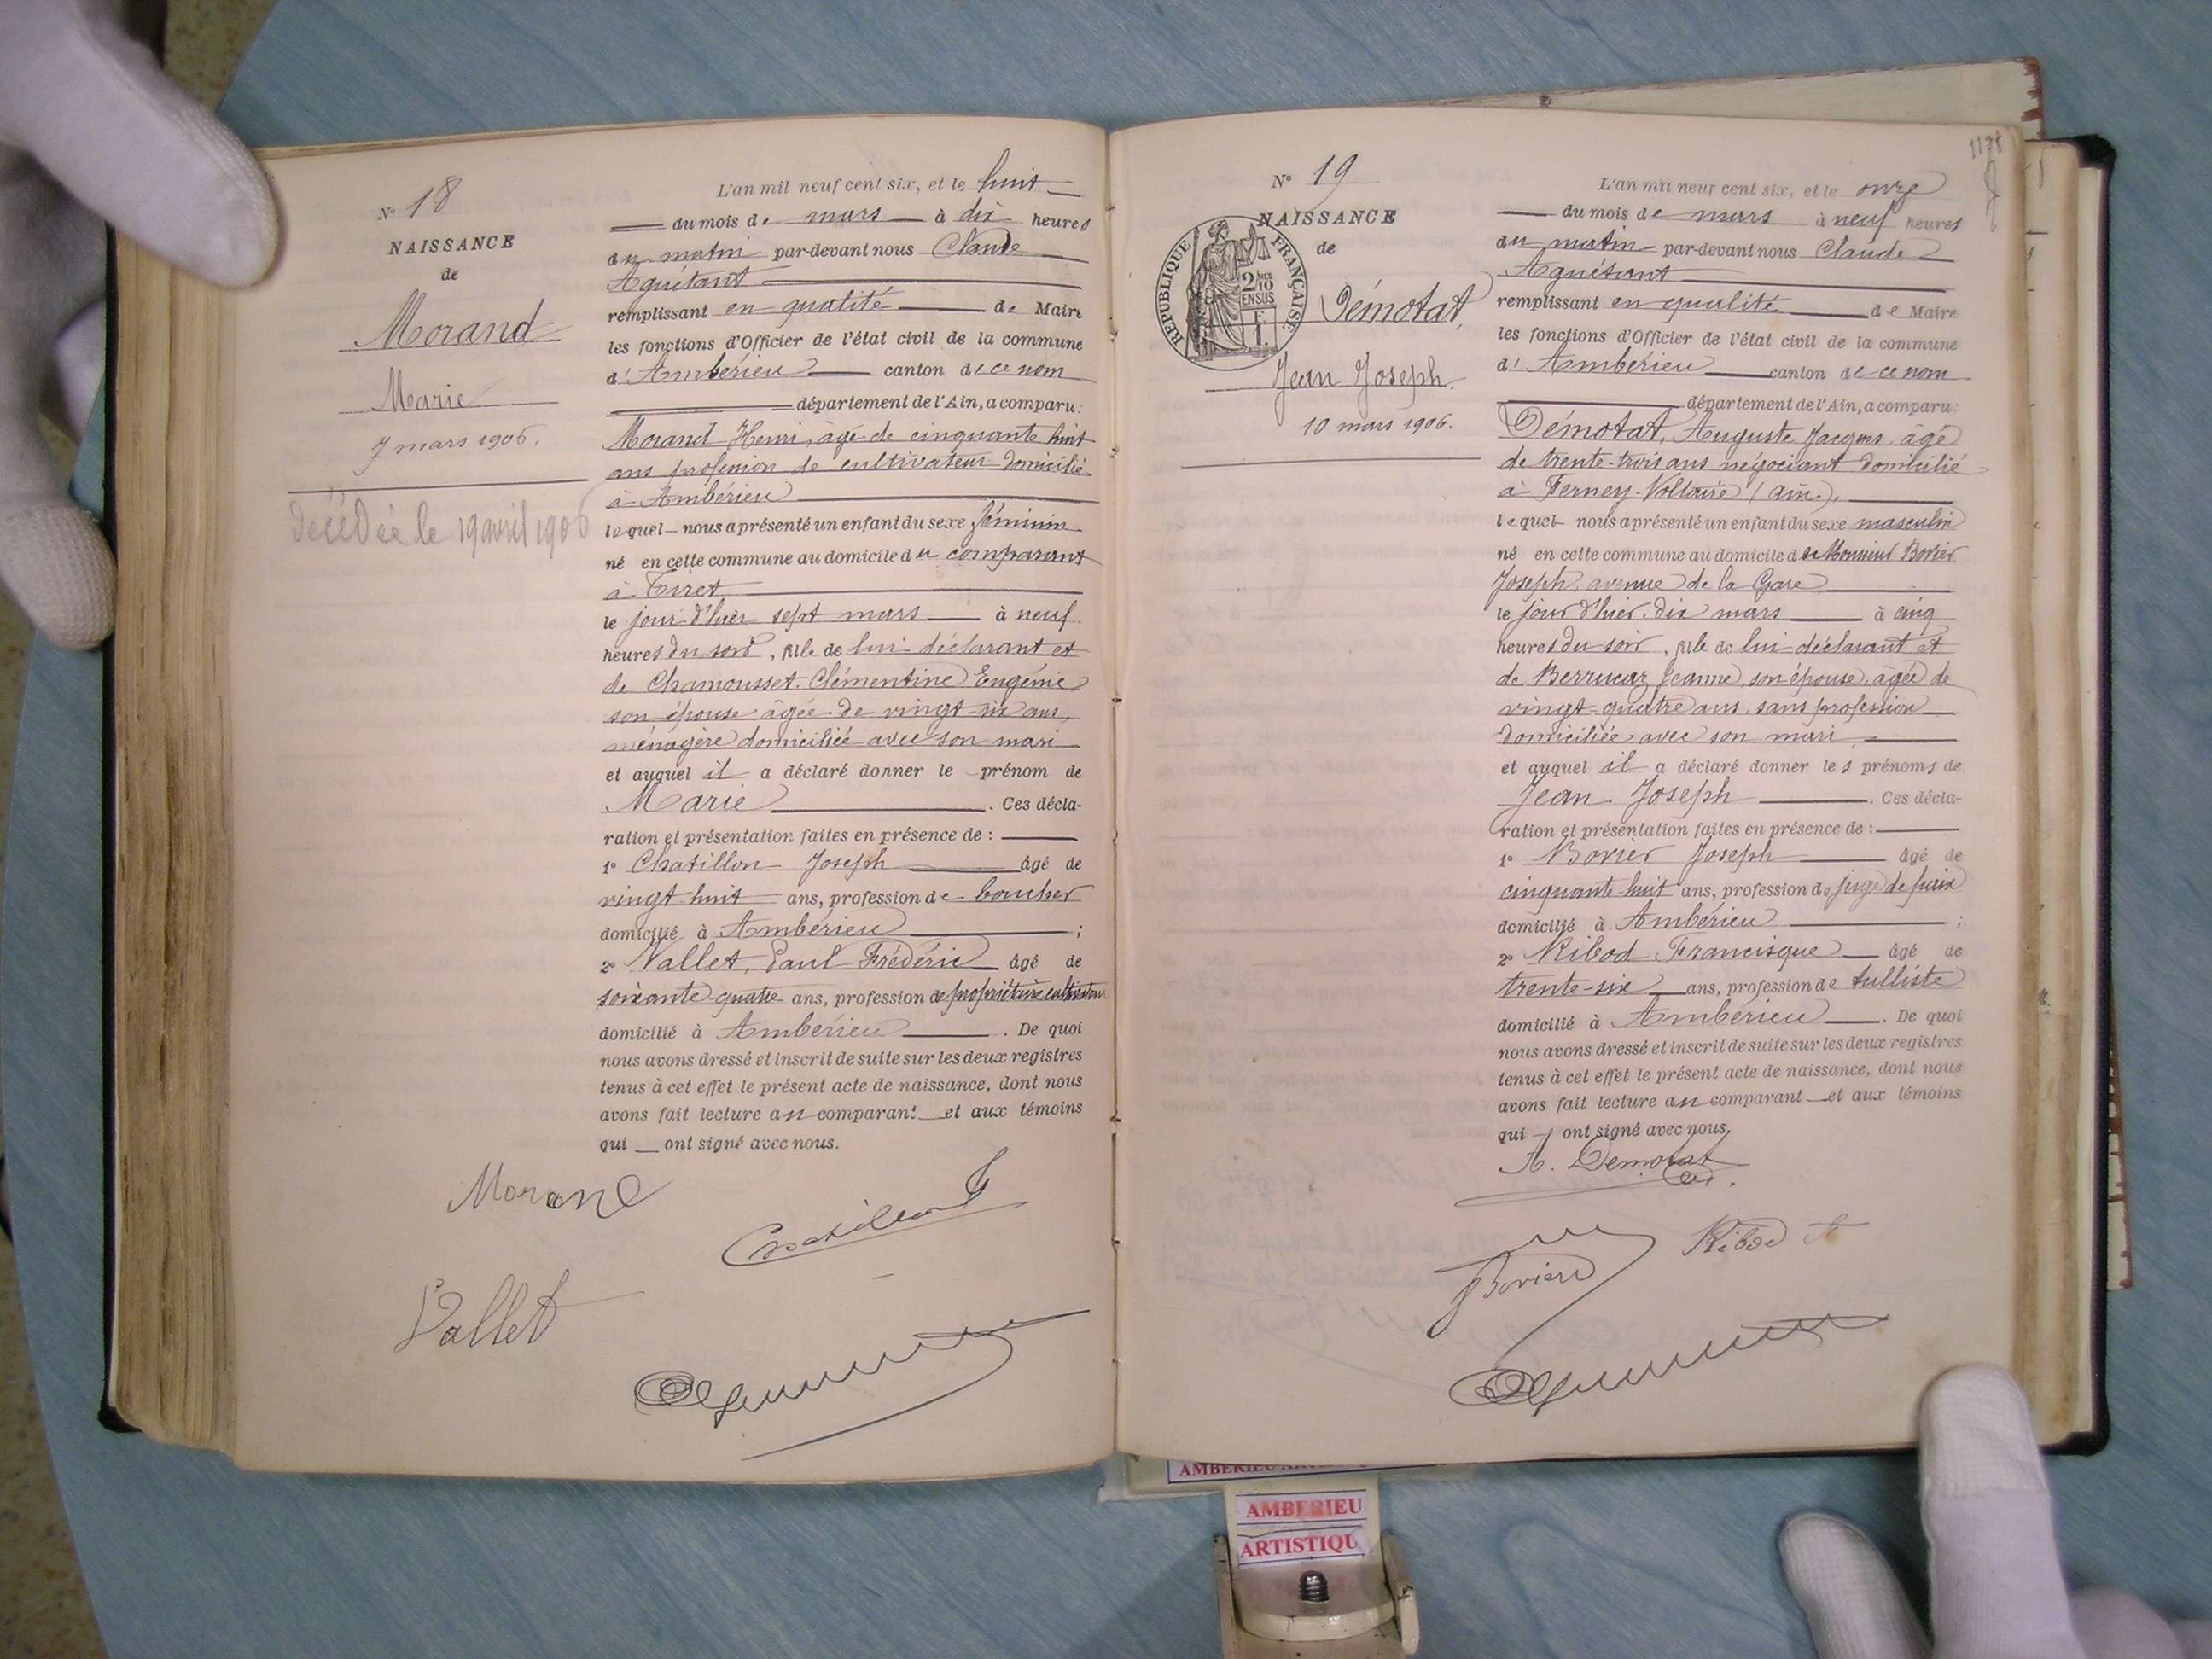 N° 18
NAISSANCE
de
Morand
Marie
7 mars 1906.
décédée le 19 avril 1906
L'an mil neuf cent six, et le huit
du mois de mars à dix heures
du matin par-devant nous Claude
Aguétant
remplissant en qualité de Maire
les fonctions d'Officier de l'état civil de la commune
d'Ambérieu canton de ce nom
département de l'Ain, a comparu:
Morand Henri, âgé de cinquante huit
ans profession de cultivateur domicilié
à Ambérieu
lequel nous a présenté un enfant du sexe féminin
né en cette commune au domicile du comparant
à Tiret
le jour d'hier sept mars à neuf
heures du soir, fille de lui déclarant et
de Chamousset Clémentine Eugénie
son épouse âgée de vingt-six ans,
ménagère domiciliée avec son mari
et auquel il a déclaré donner le prénom de
Marie . Ces décla-
ration et présentation faites en présence de :
1° Chatillon Joseph âgé de
vingt-huit ans, profession de boucher
domicilié à Ambérieu ;
2° Vallet, Paul Frédéric âgé de
soixante-quatre ans, profession de propriétaire cultivateur
domicilié à Ambérieu . De quoi
nous avons dressé et inscrit de suite sur les deux registres
tenus à cet effet le présent acte de naissance, dont nous
avons fait lecture au comparant et aux témoins
qui ont signé avec nous.
Morand
Chatillon
Vallet
N° 19
NAISSANCE
de
REPUBLIQUE FRANÇAISE
2/10 EN SUS
Démotat,
Jean Joseph.
10 mars 1906.
L'an mil neuf cent six, et le onze
du mois de mars à neuf heures
du matin par-devant nous Claude
Aguétant
remplissant en qualité de Maire
les fonctions d'Officier de l'état civil de la commune
d'Ambérieu canton de ce nom
département de l'Ain, a comparu:
Démotat, Auguste Jacques âgé
de trente-trois ans négociant domicilié
à Ferney-Voltaire (Ain).
lequel nous a présenté un enfant du sexe masculin
né en cette commune au domicile de Monsieur Bovier
Joseph, avenue de la Gare
le jour d'hier dix mars à cinq
heures du soir, fils de lui déclarant et
de Jeanne, son épouse, âgée de
vingt-quatre ans sans profession
domiciliée avec son mari
et auquel il a déclaré donner les prénoms de
Jean Joseph . Ces décla-
ration et présentation faites en présence de :
1° Bovier Joseph âgé de
cinquante-huit ans, profession de juge de paix
domicilié à Ambérieu ;
2° Ribod Francisque âgé de
trente-six ans, profession de tulliste
domicilié à Ambérieu . De quoi
nous avons dressé et inscrit de suite sur les deux registres
tenus à cet effet le présent acte de naissance, dont nous
avons fait lecture au comparant et aux témoins
qui ont signé avec nous.
A. Démotat
Ribod
Bovier
AMBERIEU
ARTISTIQU